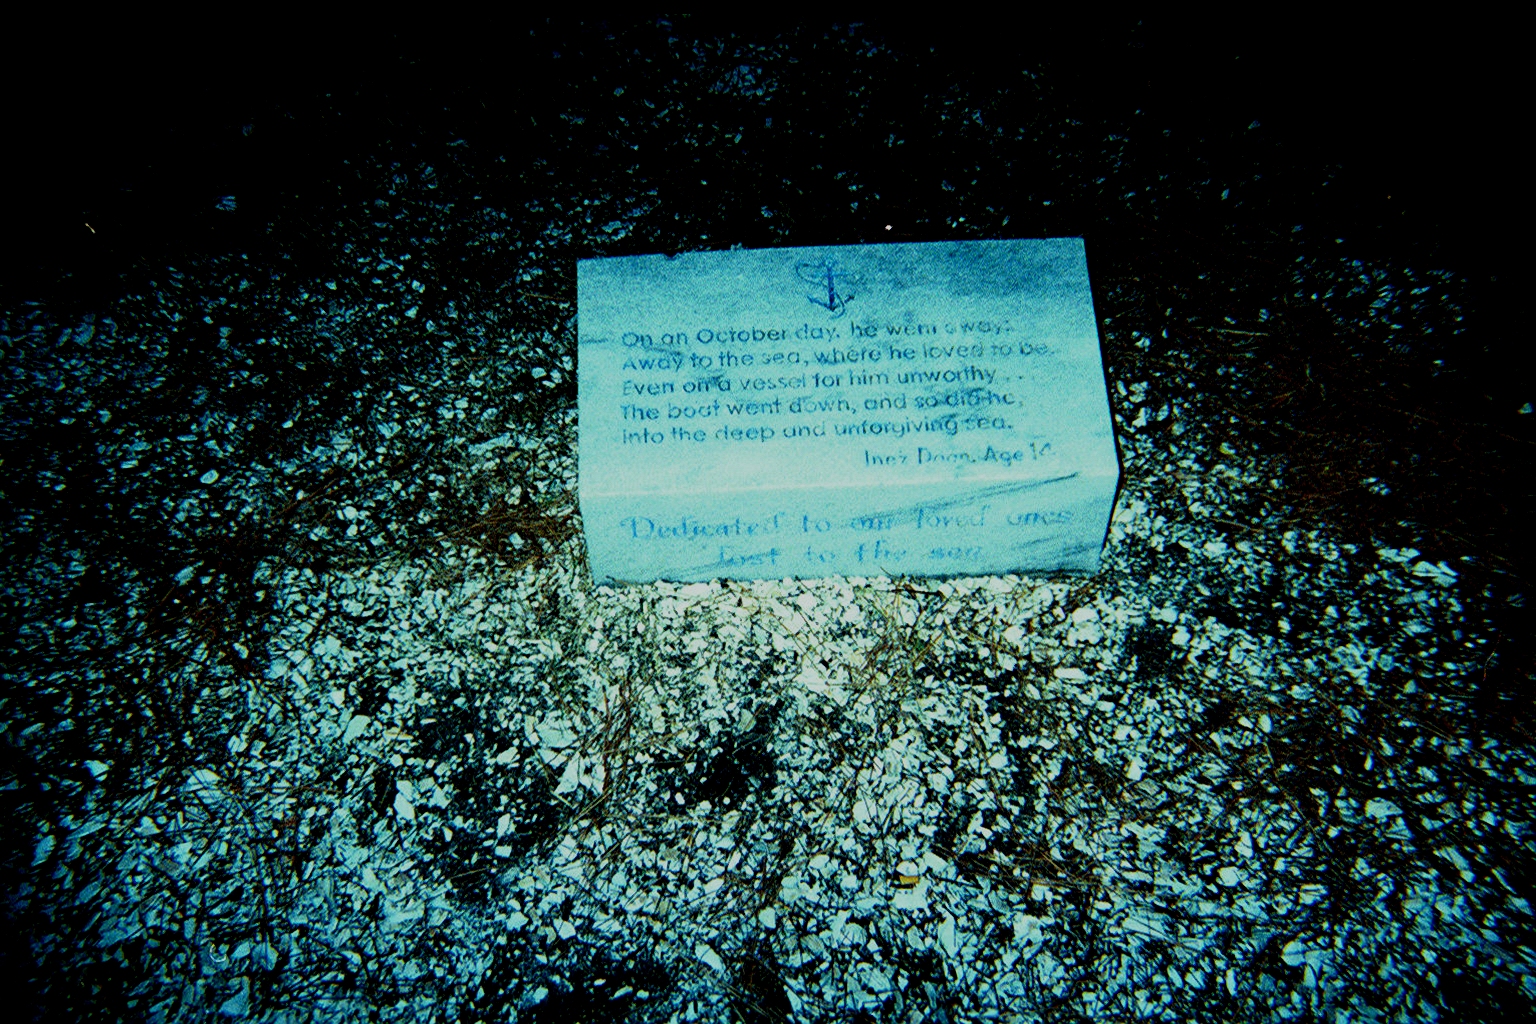 On an October day, he went away:
Away to the sea, where he loved to be.
Even on a vessel for him unworthy . . .
The boat went down, and so did he,
Into the deep and unforgiving sea.
Inez Age
Dedicated to our loved ones
lost to the sea